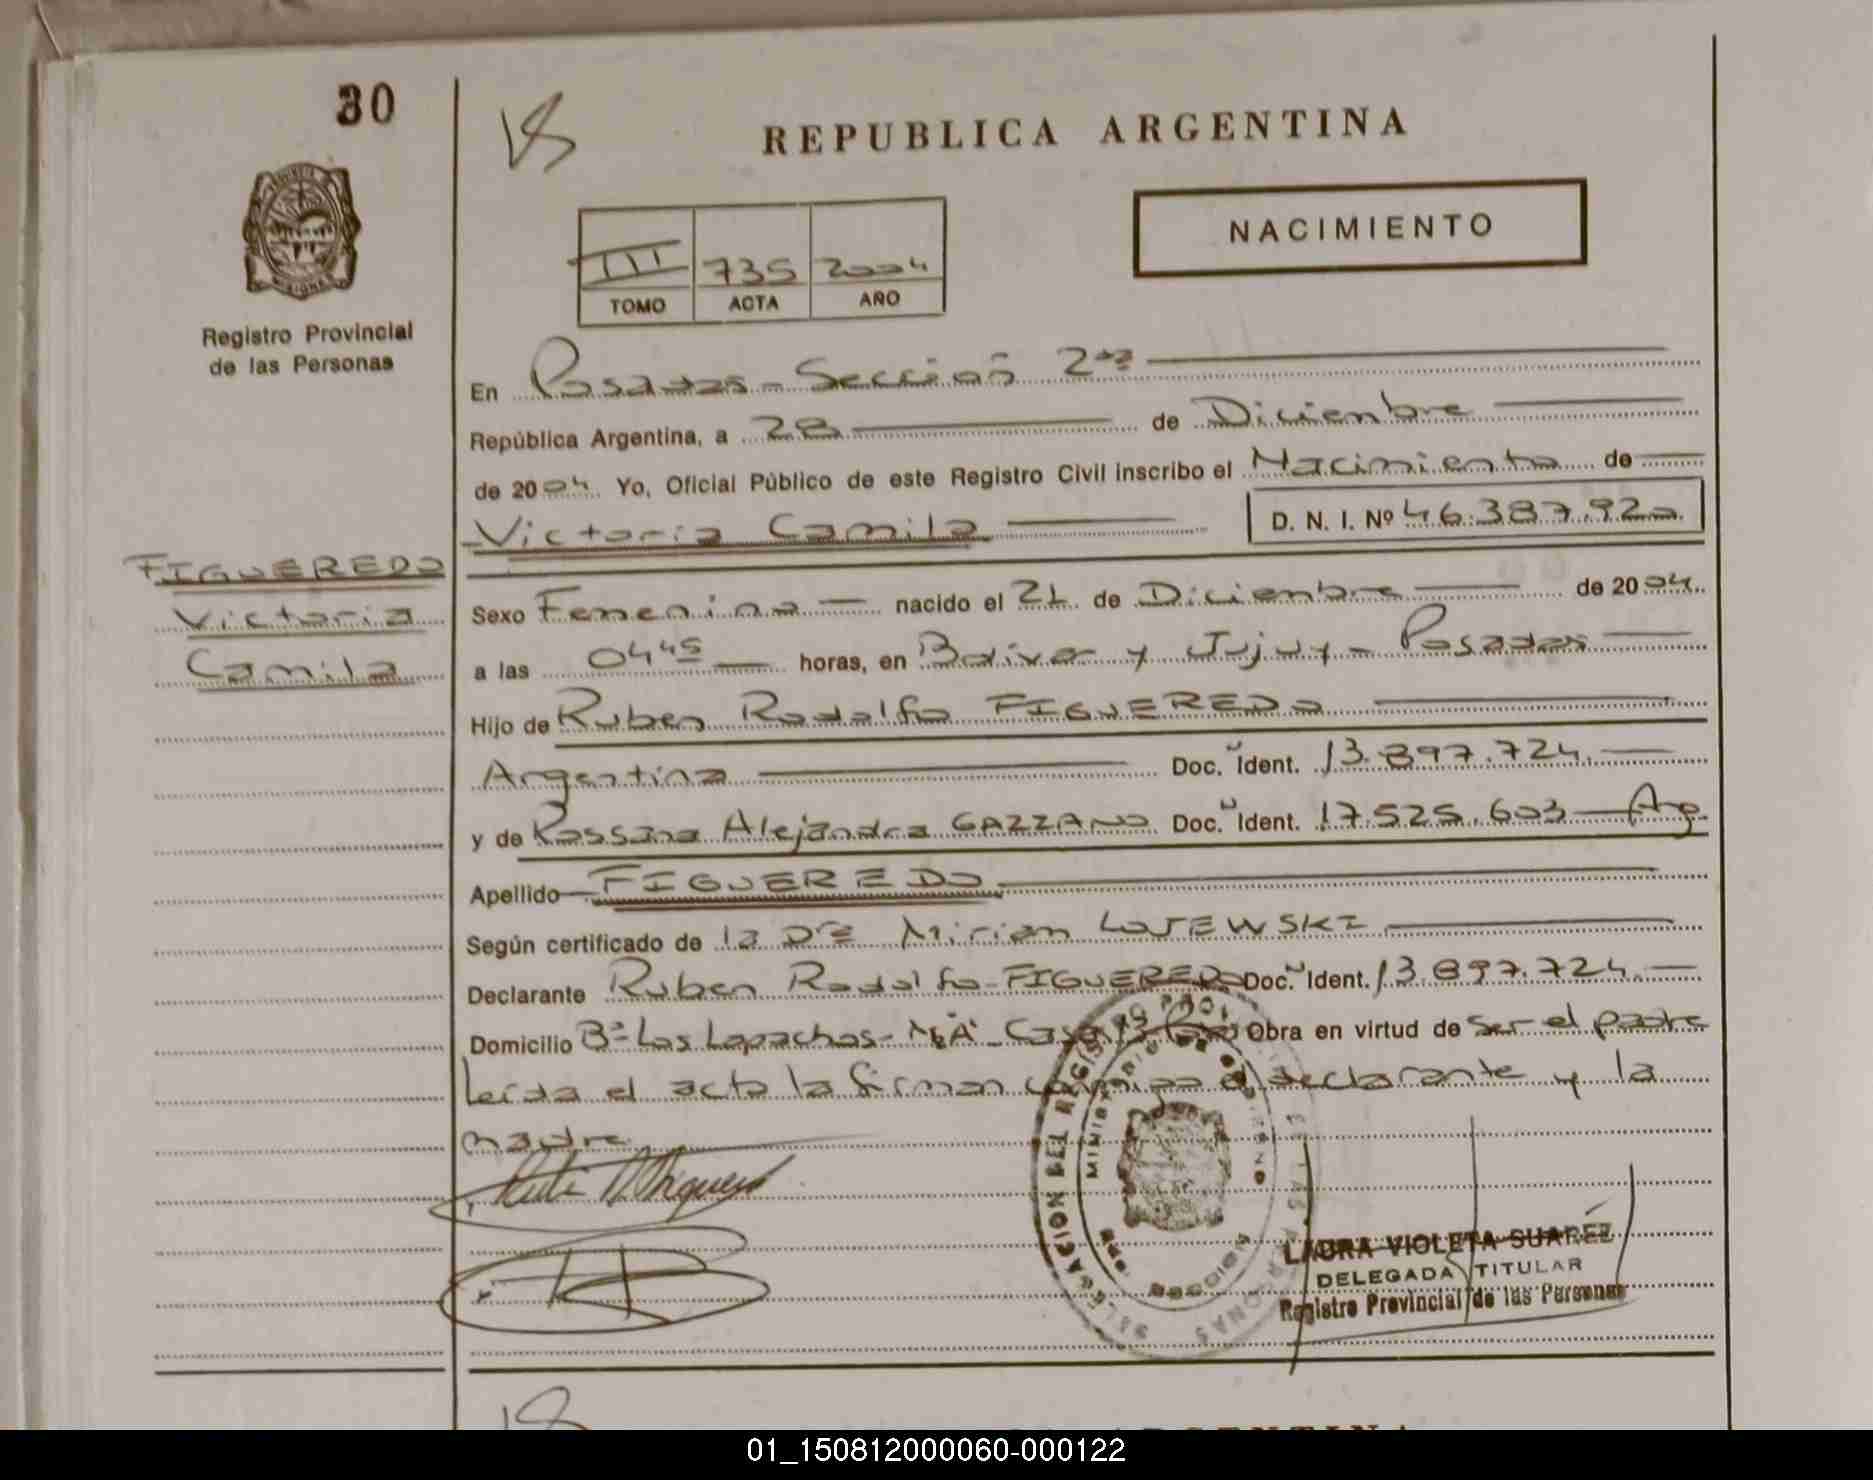 30
REPUBLICA ARGENTINA
NACIMIENTO
III 735 2004
TOMO ACTA AÑO
Registro Provincial
de las Personas
En Posadas - Sección 2da
República Argentina, a 28 de Diciembre
de 2004 Yo, Oficial Público de este Registro Civil inscribo el Nacimiento de
Victoria Camila D. N. I. Nº 46.387.920
FIGUEREDO
Victoria
Camila
Sexo Femenino nacido el 21 de Diciembre de 2004
a las 0445 horas, en Bolivar y Jujuy - Posadas
Hijo de Ruben Rodolfo FIGUEREDO
Argentina Doc. Ident. 13.897.724
y de Rossana Alejandra GAZZANO Doc. Ident. 17.525.603 - Arg
Apellido FIGUEREDO
Según certificado de la Dra Mirian LOJEWSKI
Declarante Ruben Rodolfo FIGUEREDO Doc. Ident. 13.897.724
Domicilio Bº Los Lapachos - Casa Obra en virtud de ser el padre
leída el acta la firman conmigo el declarante y la
madre
DELEGACION DEL REGISTRO
LAURA VIOLETA SUAREZ
DELEGADA TITULAR
Registro Provincial de las Personas
ARGENTINA
01_150812000060-000122